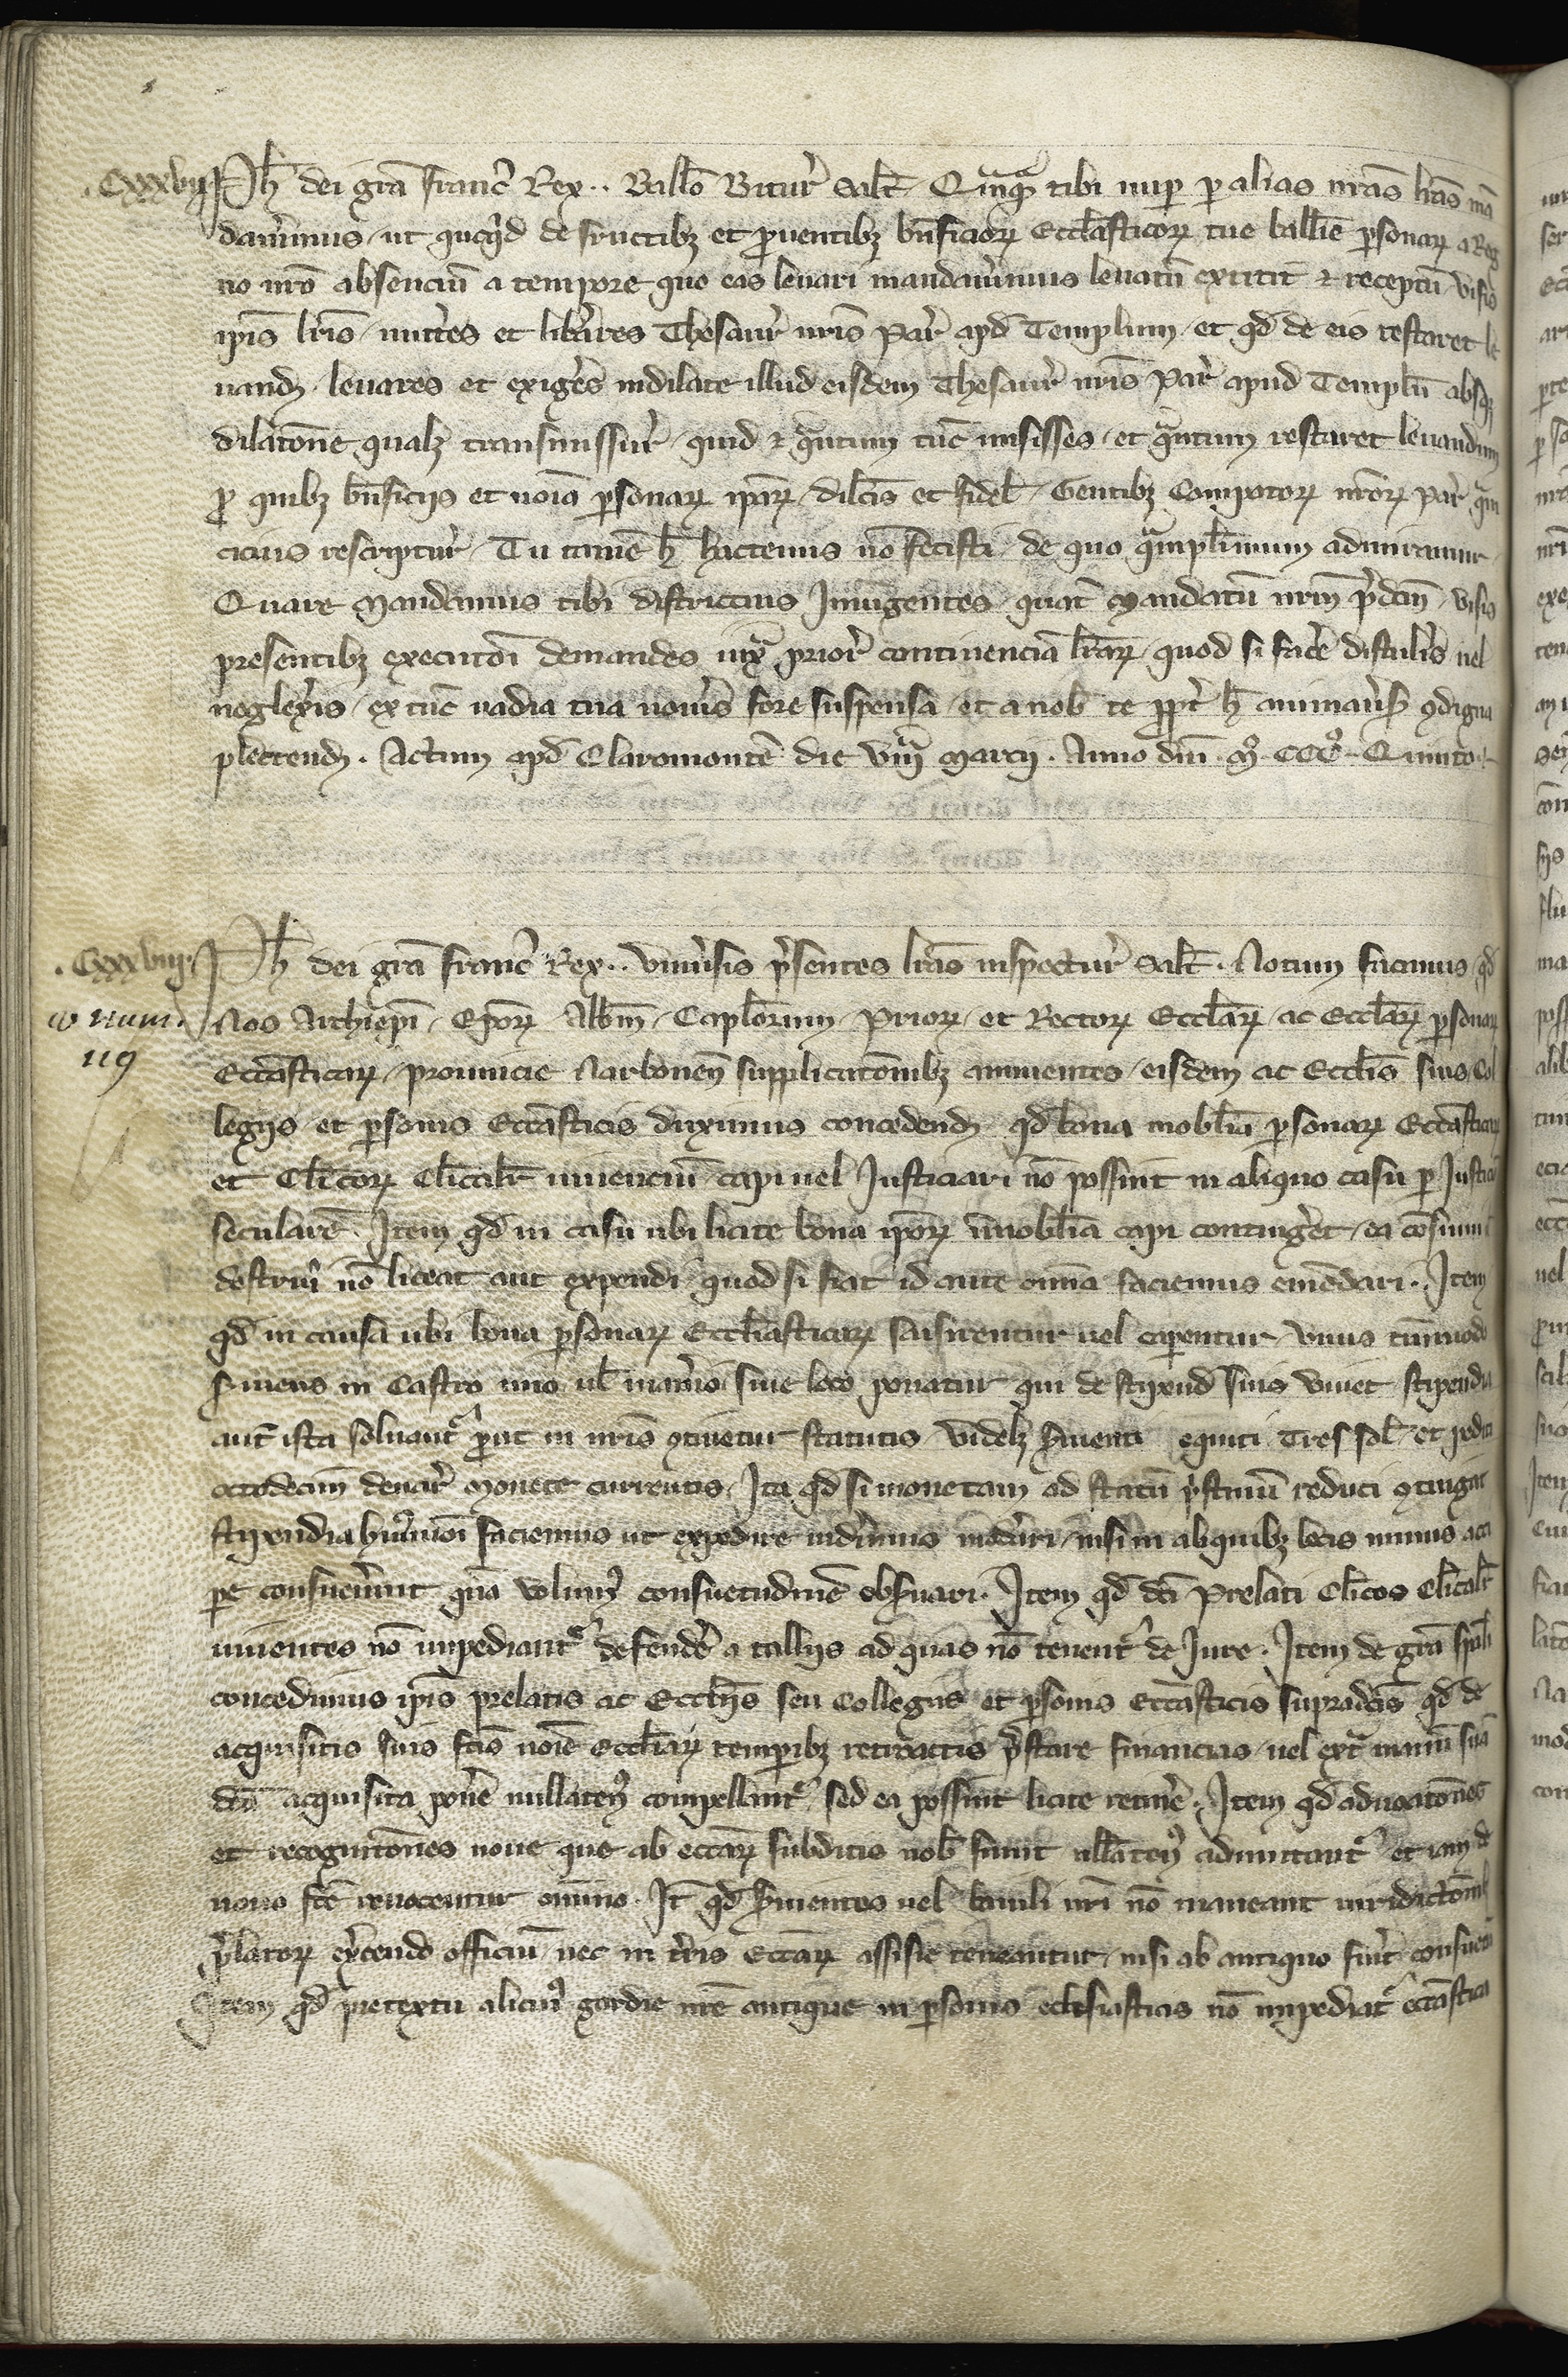 .Cxxxvij. Ph̄ dei gr̄a Franc̄ Rex.. Ballīo Bitur̄ sal̄t. Quāquā tibi nup̄ p̄ alias nr̄as l̄ras mā
dauerimus, ut quicq̄d de fructibꝫ et prouentibꝫ bn̄ficiorꝫ Eccl̄asticorꝫ tue ballīe p̄sonarꝫ a Reg
no nr̄o absenciū a tempore quo eas leuari mandauimus leuatū extitit ⁊ receptū visis
ip̄is l̄ris, mitt̄es et lib̄ares Thesaur̄ nr̄is Par̄ apd̄ Templum, et qd̄ de eis restaret le
uandꝫ leuares et exiḡes indilate illud eisdem Thesaur̄ nr̄is Par̄ apud Templū absqꝫ
dilatōne qualꝫ transmissur̄, quid ⁊ quātum tūc misisses, et quātum restaret leuandum
pro quibꝫ bn̄ficijs et noīa p̄sonarꝫ ip̄arꝫ, dilc̄is et fidel̄, Gentibꝫ Compotorꝫ nr̄orꝫ Par̄ quā
cicius rescriptur̄, Tu tamē h̄ hactenus nō fecisti, de quo quāplurimum admiramur.
Quare Mandamus tibi districtius Iniūgentes, quat̄ mandatū nr̄m p̄dcm̄, visis
presentibꝫ execucōi demandes iuxa prior̄ continenciā l̄rarꝫ, quod si face distuleris uel
neglex̄is, ex tūc uadia tua noueris fore suspensa, et a nob̄ te ppt̄ h̄ animaūs. 9digna
plectendꝫ. Actum apd̄ Claromontē die viijᵃ Marcij. Anno dn̄i. Mº. CCCº. Quinto.
.Cxxxviij. Ph̄ dei gr̄a Franc̄ Rex.. vniūsis p̄sentes l̄ras inspectur̄ sal̄t. Notum facimus, qd̄
Nos Archiep̄i, Ep̄orꝫ Abbm̄, Capl̄orum, Priorꝫ, et Rectorꝫ Eccl̄arꝫ, ac Eccl̄arꝫ p̄sonarꝫ
Ecc̄asticarꝫ, prouincie Narbonen̄ supplicatōnibꝫ annuentes, eisdem ac Eccl̄is suis Col
legijs et p̄sonis Ecc̄asticis duximus concedendꝫ qd̄ bona mobilia p̄sonarꝫ Ecc̄asticarꝫ
et Cl̄icorꝫ Cl̄icalit̄ uiuenciū capi uel Iusticiari nō possint in aliquo casu p̄ Iusticiā
secularē. Item qd̄ in casu ubi licite bona ip̄orꝫ īmobilia capi continḡet, ea cōsumi
destrui nō liceat aut expendi, quod si fiat id ante omīa faciemus emēdari.. Item
qd̄ in causa ubi bona p̄sonarꝫ Eccl̄iasticarꝫ saisirentur uel caperentur, vnus tm̄modo
s̄uiens in Castro uno ul̄ man̄io siue loco ponatur qui de stipend̄ suis viuet, stipendia
aut̄ ista soluant᷑ prout in nr̄is 9tinetur statutis videlꝫ s̄uienti equiti Tres sol̄ et pediti
octodecim denar̄ monete currentis, Ita qd̄ si monetam ad statū p̄stinū reduci 9tingat
stipendia huiꝰmōi faciemus ut expedire uid̄imus mod̄ari, nisi in aliquibꝫ locis minus acci
pe consueuerint quā volumꝰ consuetudinē obs̄uari. Item qd̄ dc̄i Prelati Cl̄icos Cl̄icalit̄
uiuentes nō impediant᷑ defend̄e a tallijs ad quas nō tenent᷑ de Iure. Item de gr̄a sp̄ali
concedimus ip̄is prelatis ac Eccl̄ijs seu Collegijs et p̄sonis Ecc̄asticis supradc̄is qd̄ de
acquisitis suis fc̄is noīe Eccl̄iarꝫ temporibꝫ retroactis p̄stare financias, uel ext̄ manū suā
dc̄a acquisita pon̄e nullatenꝰ compellant᷑, sed ea possint licite retin̄e. Item qd̄ aduocatōnes
et recognitōnes noue que ab ecc̄arꝫ subditis nob̄ fiunt ullatenꝰ admittant᷑ et iam de
nouo fc̄e reuocentur omnino. It̄ qd̄ s̄uientes uel baiuli nr̄i nō maneant iuridictōnē
p̄latorꝫ ex̄cendo officiū nec in t̄ris Ecc̄arꝫ assisie teneantur, nisi ab antiquo fuīt consuetū
Item qd̄ pretextu aliciꝰ gardie nr̄e antique in p̄sonis ecclesiasticis nō impediat᷑ ecc̄astica